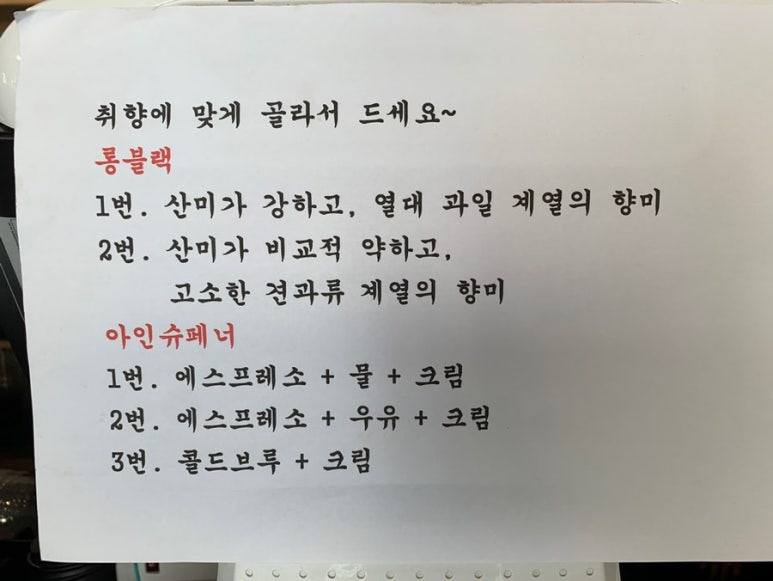 취향에 맞게 골라서 드세요~
롱블랙
1번. 산미가 강하고, 열대 과일 계열의 향미
2번. 산미가 비교적 약하고,
고소한 견과류 계열의 향미
아인슈페너
1번. 에스프레소 + 물 + 크림
2번. 에스프레소 + 우유 + 크림
3번. 콜드브루 + 크림